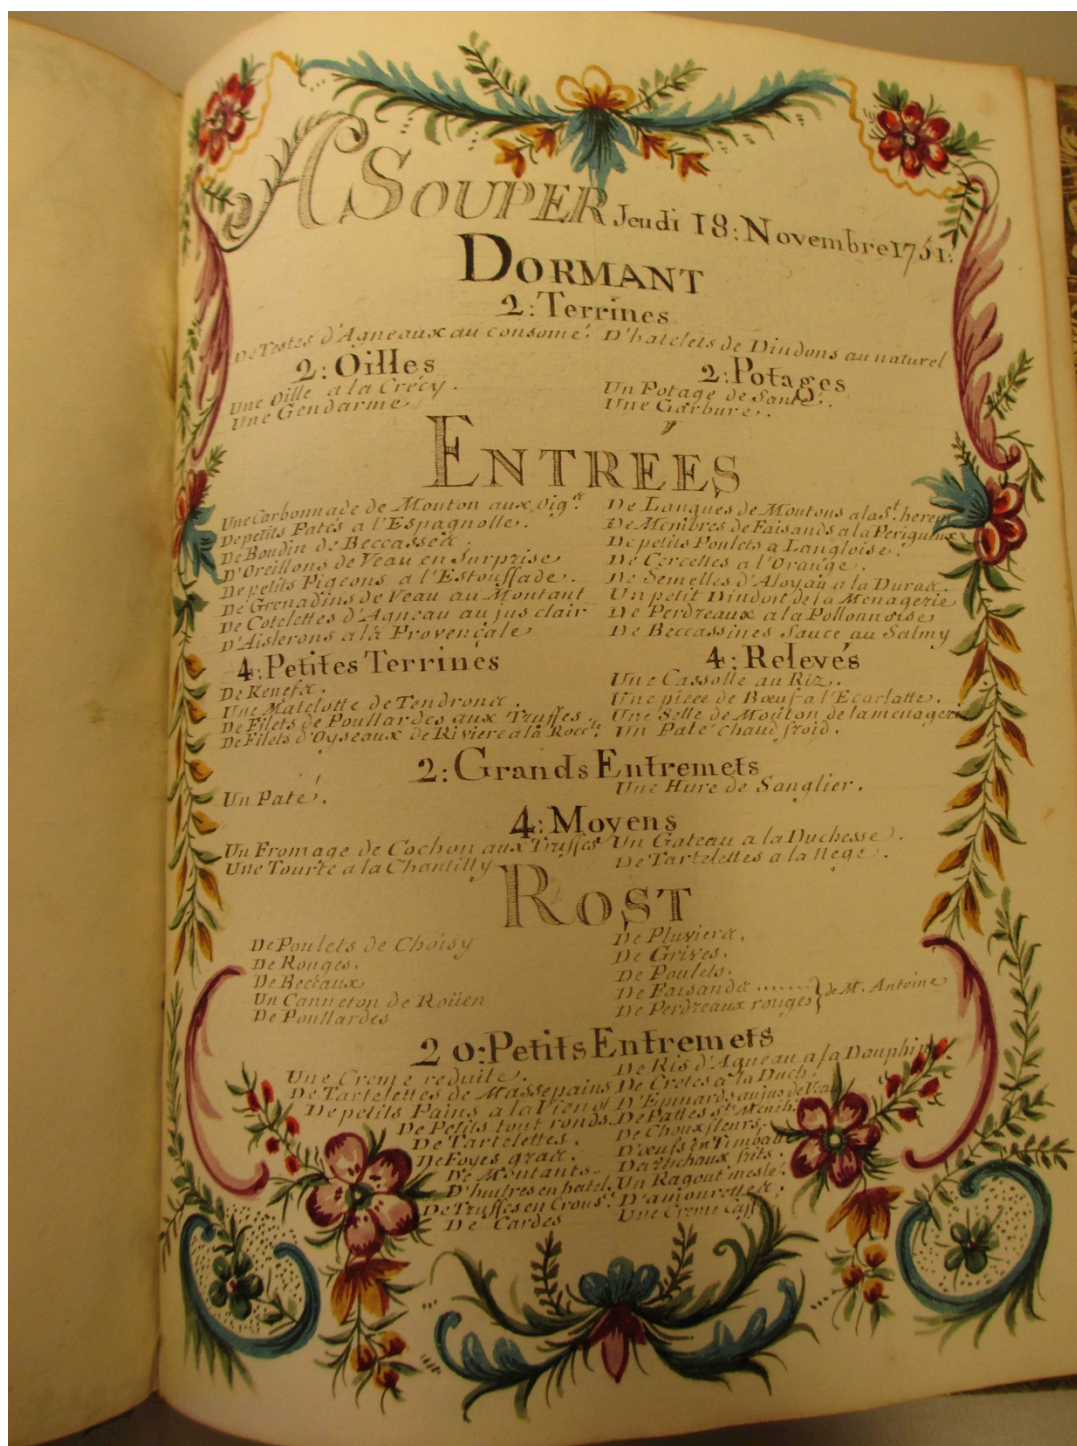 A SOUPER Jeudi 18: Novembre 1751:
DORMANT
2: Terrines
De Testes d'Agneaux au consomé. D'hatelets de Dindons au naturel
2: Oilles
Une Oille a la Crécy.
Une Gendarme
2: Potages
Un Potage de Santé.
Une Garbure.
ENTRÉES
Une Carbonnade de Mouton aux oig.
De petits Patés a l'Espagnolle.
De Boudin de Beccasse&.
D'Oreillons de Veau en Surprise
De petits Pigeons a l'Estouffade.
De Grenadins de Veau au Montant
De Cotelettes d'Agneau au jus clair
D'Aislerons a la Provençale
De Langues de Moutons a la St. herem
De Membres de Faisands a la Perigueux
De petits Poulets a Langloise.
De Cercelles a l'Orange.
De Semelles d'Aloyau a la Dura&.
Un petit Dindon de la Menagerie
De Perdreaux a la Pollonnoise
De Beccassines Sauce au Salmy
4: Petites Terrines
De Kenef&.
Une Matelotte de Tendron&.
De Filets de Poullardes aux Truffes
De Filets d'Oyseaux de Riviere a la Rocc.
4: Relevés
Une Cassolle au Riz.
Une piece de Bœuf a l'Ecarlatte.
Une Selle de Mouton de la menageri
Un Paté chaud froid.
2: Grands Entremets
Un Paté.
Une Hure de Sanglier.
4: Moyens
Un Fromage de Cochon aux Truffes Un Gateau a la Duchesse.
Une Tourte a la Chantilly
De Tartelettes a la nege.
ROST
De Poulets de Choisy
De Rouges.
De Beccaux
Un Canneton de Roüen
De Poullardes
De Pluvier&.
De Grives.
De Poulets.
De Faisand& ........
De Perdreaux rouges } de M. Antoine
20: Petits Entremets
Une Creme reduite.
De Tartelettes de Massepains
De petits Pains a la Vien
De Petits tout ronds.
De Tartelettes.
De Foyes gra&.
De Montants.
D'huitres en hatel.
De Truffes en Crous.
De Cardes
De Ris d'Agneau a la Dauphin
De Cretes a la Duch.
D'Epinards au jus de Veau
De Pattes Ste. Meneh.
De Choux fleurs.
D'œufs en Timbale
D'artichaux frits.
Un Ragout meslé.
D'amourette&.
Une Creme Caff